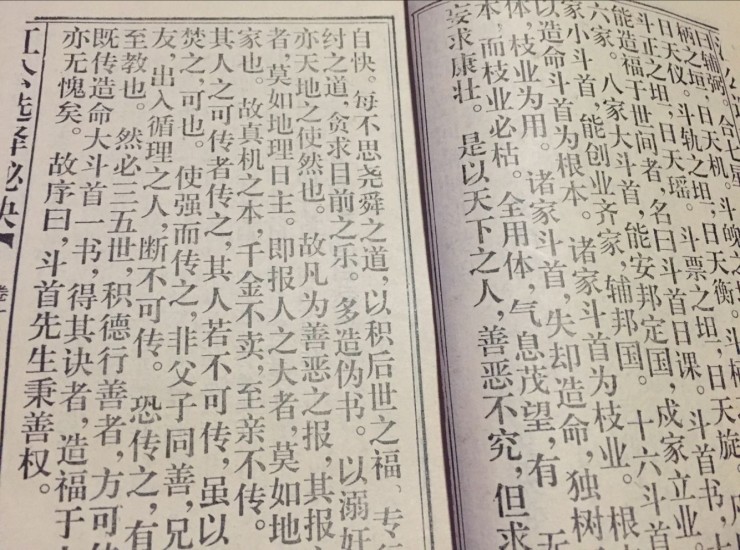 辅弼。合七星
柄之垣,日天机。斗魄之垣
日天仪。斗轨之垣,日天衡。斗柄
斗正之坦,日天瑶。斗票之坦,日天旋。凡
能造福于世问者,名曰斗首日课。斗首书,
六家。八家大斗首,能安邦定国,成家立业
家小斗首,能创业齐家,辅邦国。十六斗首
以造命斗首为根本。诸家斗首为枝业。根
体,枝业为用。诸家斗首,失却造命,独树
木,而枝业必枯。全用体,气息茂望,有 无
妄求康壮。是以天下之人,善恶不究,但求
自快。每不思尧舜之道,以积后世之福、专
纣之道,贪求目前之乐。多造伪书。以溺奸
亦天地之使然也。故凡为善恶之报,其报
者,莫如地理日主。即报人之大者,莫如地
家也。故真机之本,千金不卖,至亲不传。
其人之可传者传之,其人若不可传,虽以
焚之,可也。使强而传之,非父子同善,兄
友,出入循理之人,断不可传。恐传之,有
至教也。然必三五世,积德行善者,方可传
既传造命大斗首一书,得其诀者,造福于
亦无愧矣。故序曰,斗首先生秉善权。
江公选择秘诀【